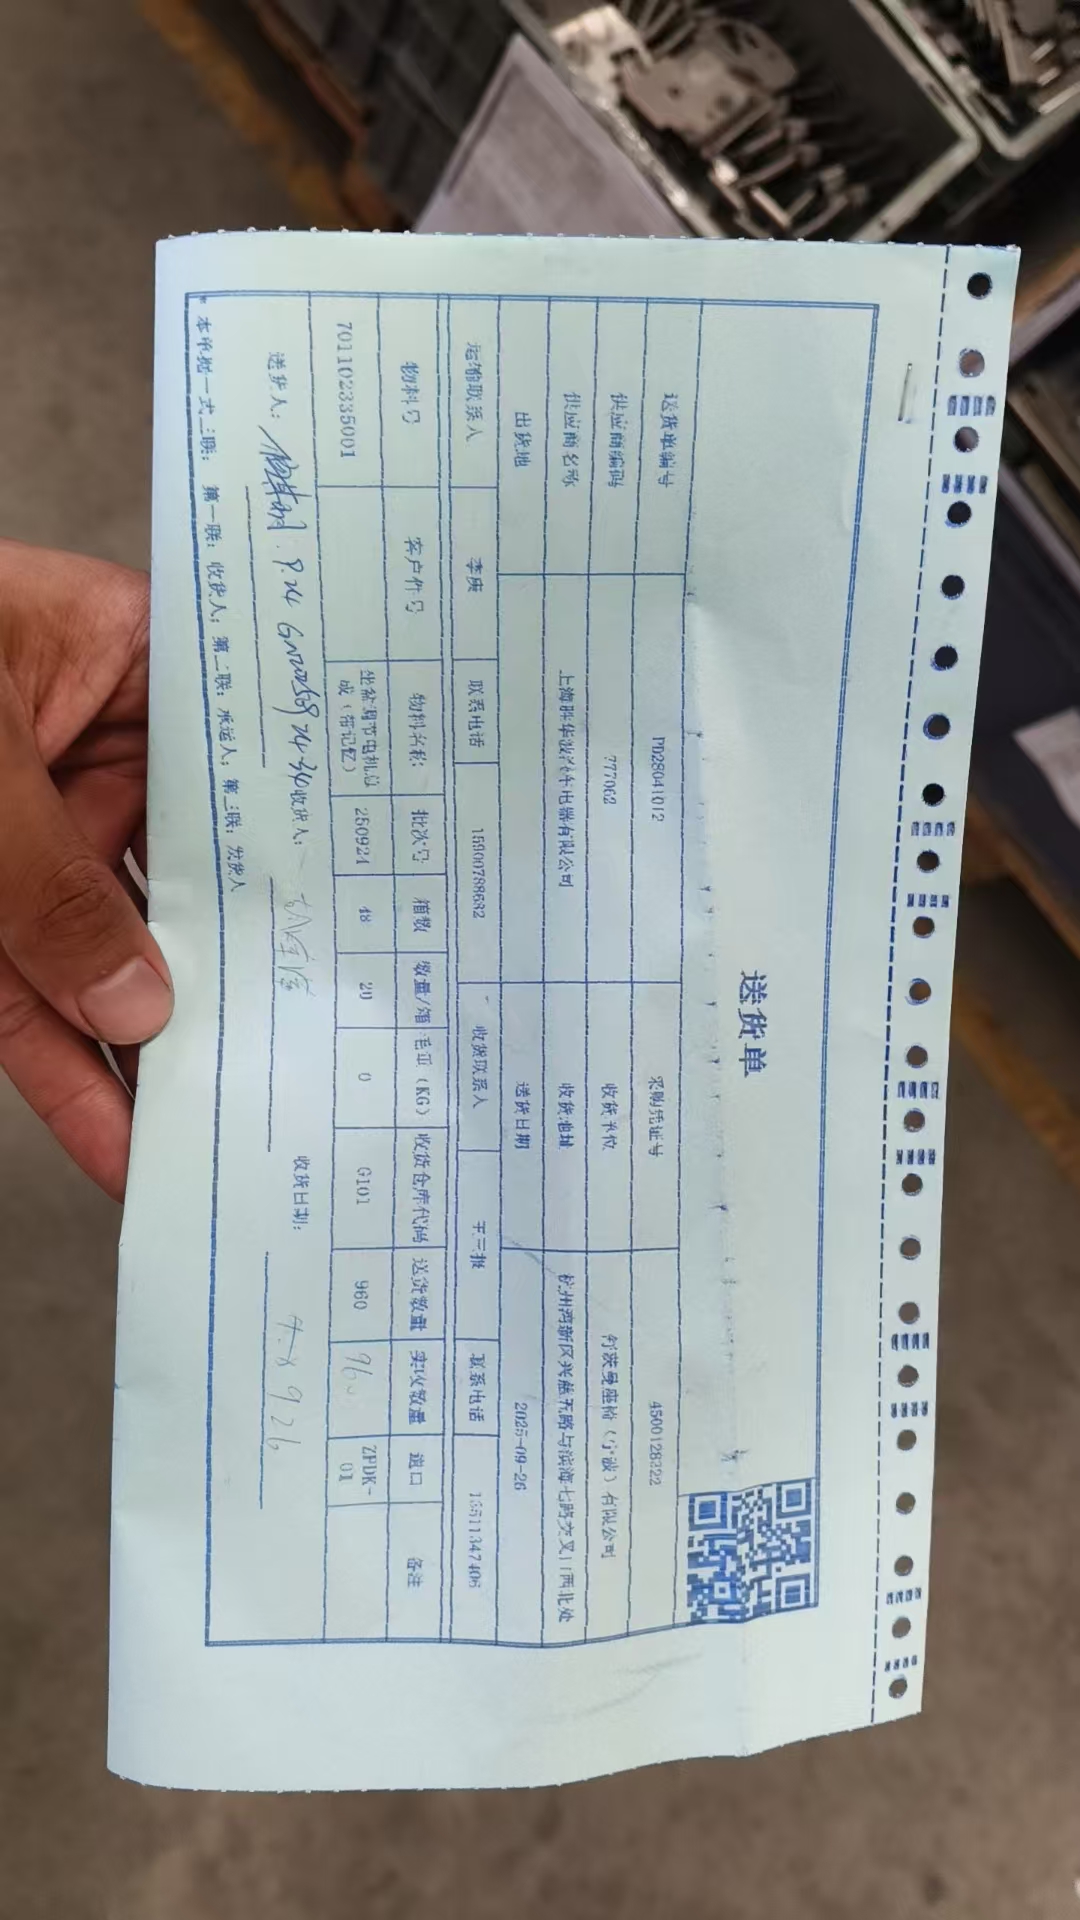 送货单
送货单编号 DD28041012 采购凭证号 4500128322
供应商编码 777062 收货单位 佇茨曼座椅（宁波）有限公司
供应商名称 上海胜华波汽车电器有限公司 收货地址 杭州湾新区兴慈五路与滨海七路交叉口西北处
出货地 送货日期 2025-09-26
运输联系人 李庚 联系电话 15900788682 收货联系人 王三批 联系电话 13511347406
物料号 客户件号 物料名称: 批次号 箱数 数量/箱 毛重（KG） 收货仓库代码 送货数量 实收数量 道口 备注
701102335001 坐盆调节电机总成（带记忆） 250924 48 20 0 G101 960 960 ZPDK-01
送货人: 9.24 收货人: 收货日期: 9 26
* 本单据一式三联: 第一联: 收货人; 第二联: 承运人; 第三联: 发货人